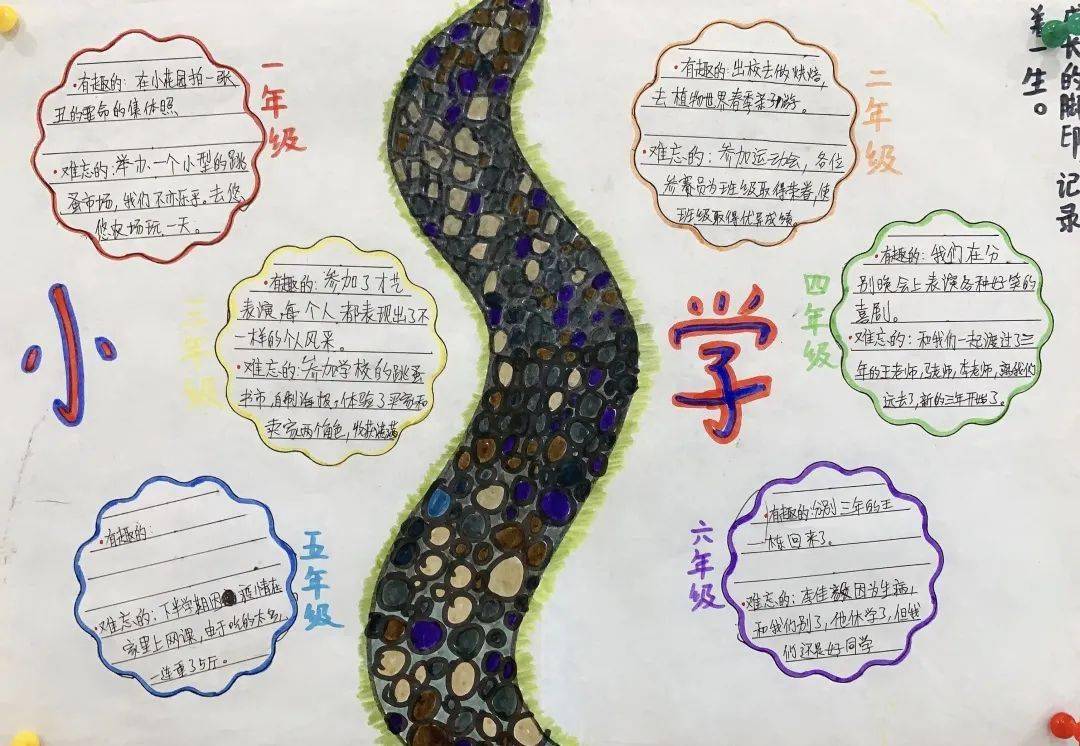 成长的脚印 记录
美一生。
小
学
一年级
·有趣的:在小花园拍一张
丑的要命的集体照
·难忘的:举办一个小型的跳
蚤市场,我们不亦乐乎。去悠
悠农场玩一天。
二年级
·有趣的:出校去做烘焙,
去植物世界春季亲子游。
·难忘的:参加运动会,各位
参赛员为班级取得荣誉,使
班级取得优异成绩
三年级
·有趣的:参加了才艺
表演,每个人都表现出了不
一样的个人风采。
·难忘的:参加学校的跳蚤
书市,自制海报。体验了买家和
卖家两个角色,收获满满
四年级
·有趣的:我们在分
别晚会上表演各种好笑的
喜剧。
·难忘的:和我们一起渡过了三
年的王老师,马老师,李老师,离我们
远去了,新的三年开始了。
五年级
·有趣的:
·难忘的:下半学期因疫情在
家里上网课,由于吃的太多,
一连重了5斤。
六年级
·有趣的:分别三年的王
栋回来了。
·难忘的:李佳 因为生病,
和我们别了,他休学了,但我
们还是好同学